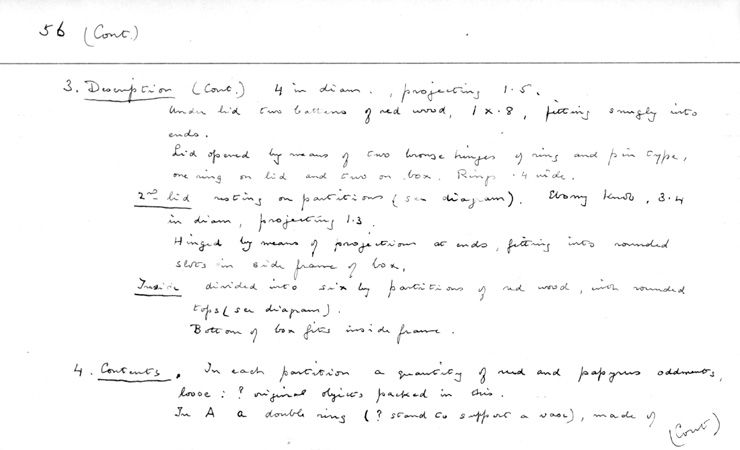 56 (Cont.)
3. Description (Cont.) 4 in diam., projecting 1.5.
Under lid two battens of red wood, 1 x .8, fitting snugly into
ends.
Lid opened by means of two bronze hinges of ring and pin type,
one ring on lid and two on box. Rings .4 wide.
2nd lid resting on partitions (see diagram). Ebony knob, 3.4
in diam, projecting 1.3.
Hinged by means of projections at ends, fitting into rounded
slots in side frame of box.
Inside divided into six by partitions of red wood, with rounded
tops (see diagram).
Bottom of box fits inside frame.
4. Contents. In each partition a quantity of reed and papyrus oddments,
loose : ? original objects packed in this.
In A a double ring (? stand to support a vase), made of
(Cont)